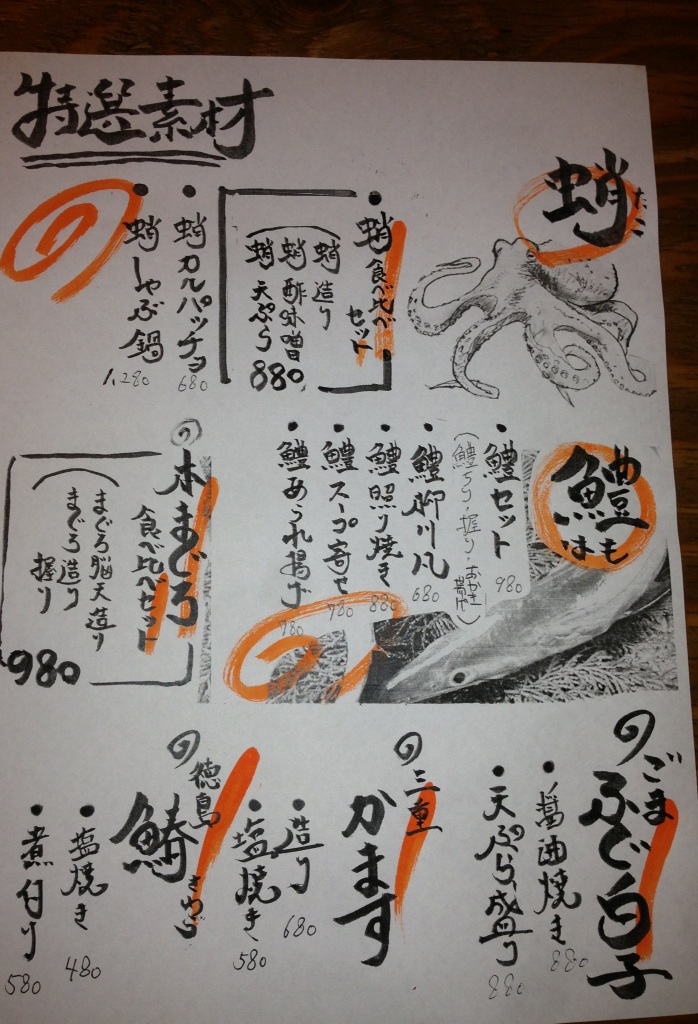 特選素材
蛸
たこ
・蛸食べ比べ
セット
蛸造り
蛸酢味噌
蛸天ぷら
880
・蛸カルパッチョ
680
・蛸しゃぶ鍋
1,280
鱧
はも
・鱧セット
980
(鱧ちり・握り・
・鱧柳川風
680
・鱧照り焼き
880
・鱧スープ寄せ
780
・鱧あられ揚げ
780
本まぐろ
食べ比べセット
まぐろ脳天造り
まぐろ造り
握り
980
ごま
ふぐ白子
・醤油焼き
880
・天ぷら盛り
880
三重
かます
・造り
680
・塩焼き
580
徳島
鰆
さわら
・塩焼き
480
・煮付け
580